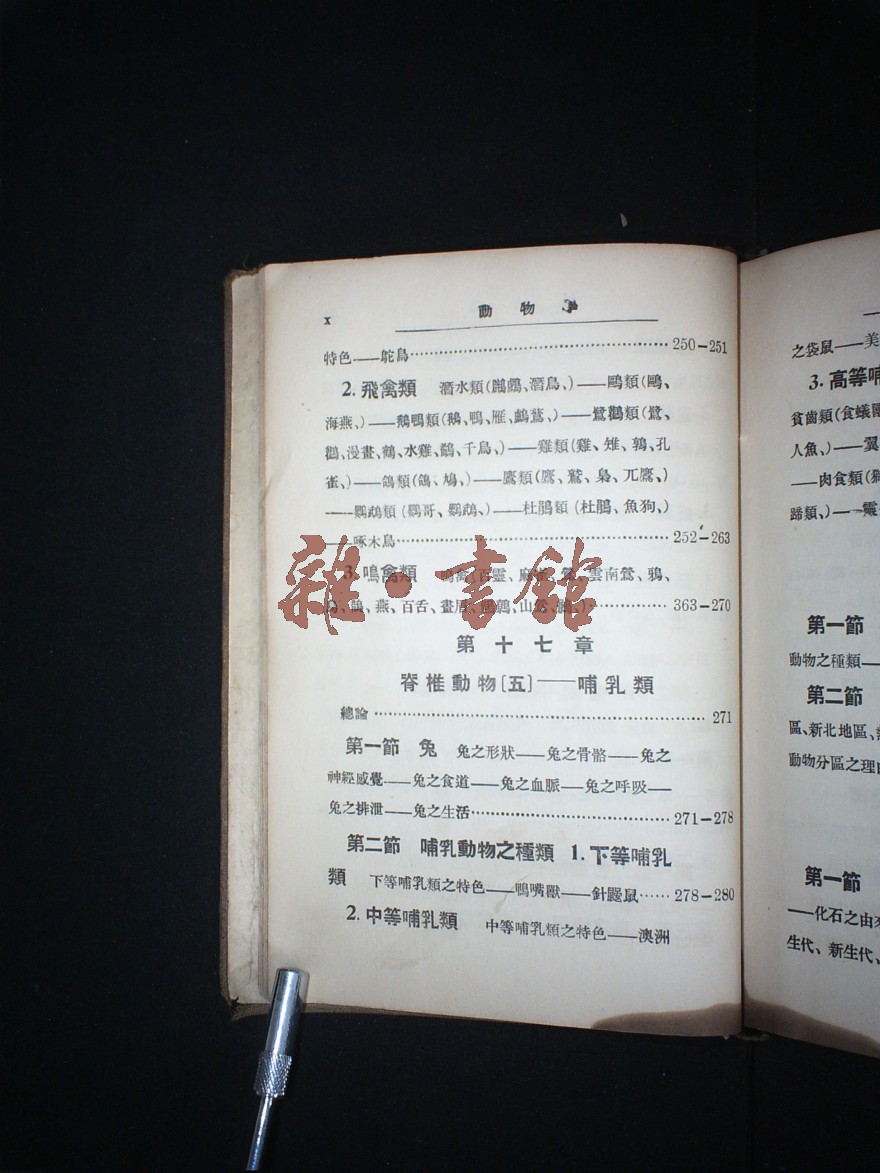 x 動物學
特色——鴕鳥 250-251
2. 飛禽類 潛水類(鸊鷉、潛鳥、)——鷗類(鷗、
海燕、)——鵝鴨類(鵝、鴨、雁、鸕鶿、)——鷺鸛類(鷺、
鸛、漫畫、鶴、水雞、鷸、千鳥、)——雞類(雞、雉、鶉、孔
雀、)——鴿類(鴿、鳩、)——鷹類(鷹、鷲、梟、兀鷹、)
——鸚鵡類(鸚哥、鸚鵡、)——杜鵑類(杜鵑、魚狗、)
——啄木鳥 252-263
3. 鳴禽類 鳴禽(百靈、麻雀、鶯、雲南鶯、鴉、
鵲、燕、百舌、畫眉、山鶯、) 363-270
第十七章
脊椎動物〔五〕——哺乳類
總論 271
第一節 兔 兔之形狀——兔之骨骼——兔之
神經感覺——兔之食道——兔之血脈——兔之呼吸——
兔之排泄——兔之生活 271-278
第二節 哺乳動物之種類 1. 下等哺乳
類 下等哺乳類之特色——鴨嘴獸——針鼴鼠 278-280
2. 中等哺乳類 中等哺乳類之特色——澳洲
雜·書館
之袋鼠——美
3. 高等哺
貧齒類(食蟻
人魚、)——翼
——肉食類(
蹄類、)——
第一節
動物之種類——
第二節
區、新北地區、
動物分區之理由
第一節
——化石之由來
生代、新生代、